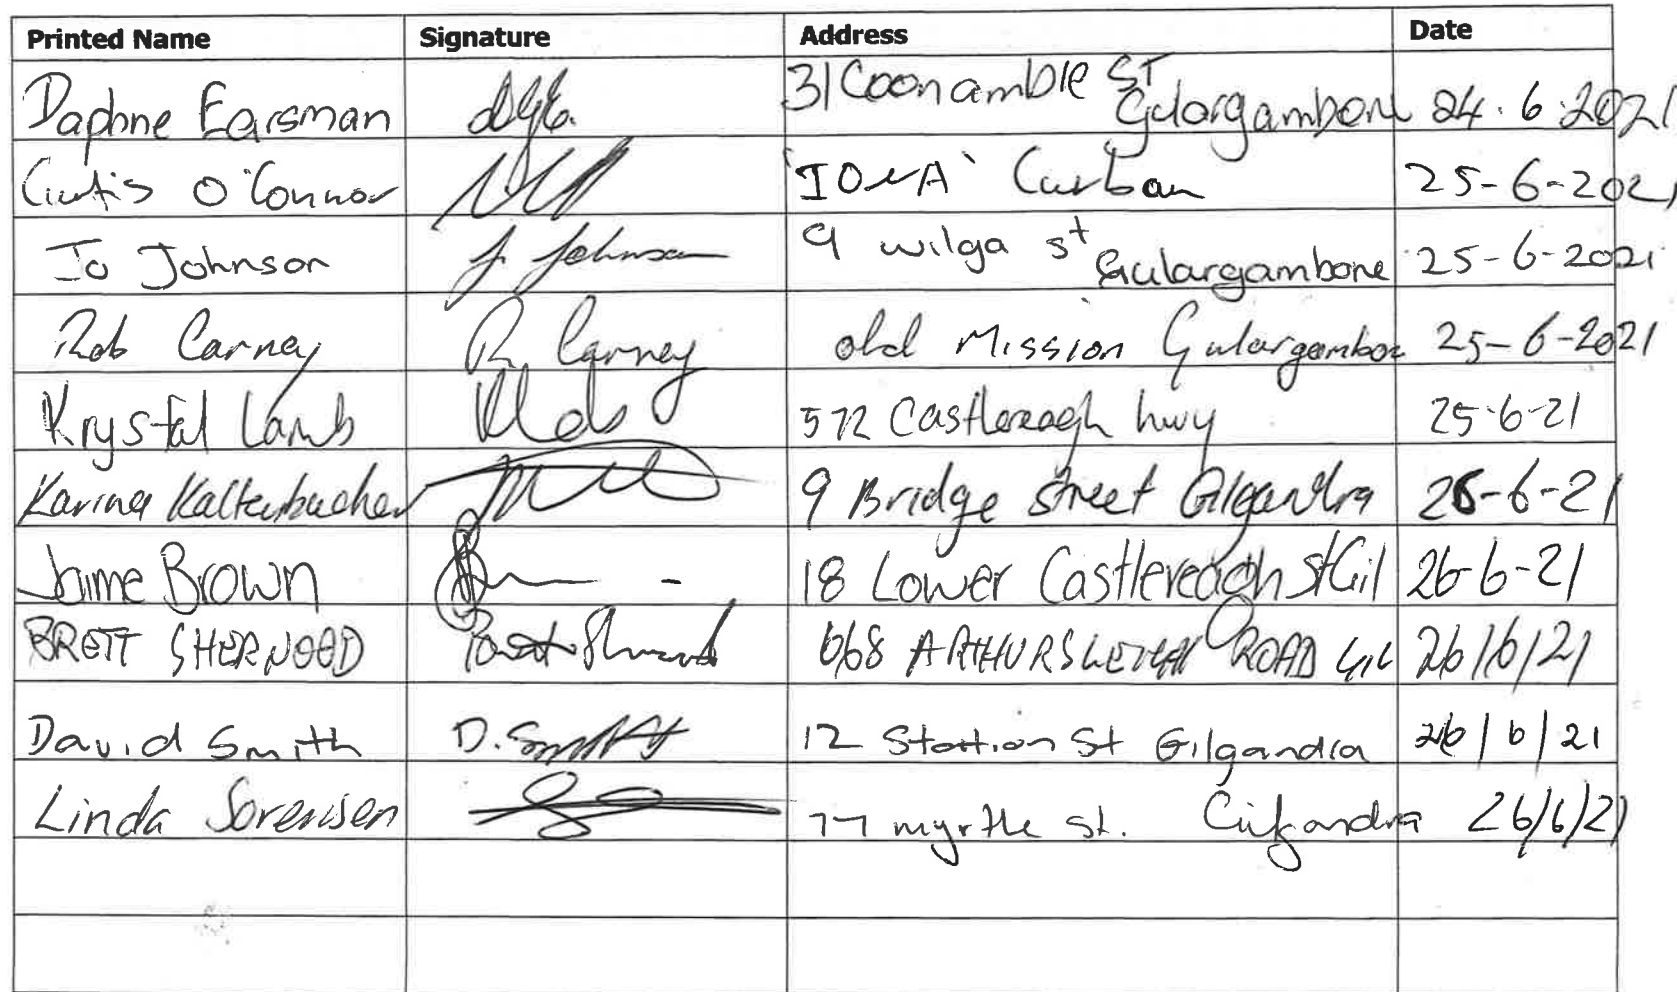 Printed Name Signature Address Date
Daphne Earsman 31 Coonamble St Gulargambone 24.6.2021
Curtis O'Connor 'IONA' Curban 25-6-2021
Jo Johnson J. Johnson 9 wilga st Gulargambone 25-6-2021
Rob Carney R. Carney old Mission Gulargambone 25-6-2021
Krystal Lamb 572 Castlereagh hwy 25-6-21
Karina Kaltenbacher 9 Bridge street Gilgandra 26-6-21
Jaime Brown 18 Lower Castlereagh St Gil 26-6-21
BRETT SHERWOOD ROAD GIL 26/6/21
David Smith D. Smith 12 Station St Gilgandra 26/6/21
Linda Sorensen 77 myrtle st. Gilgandra 26/6/21